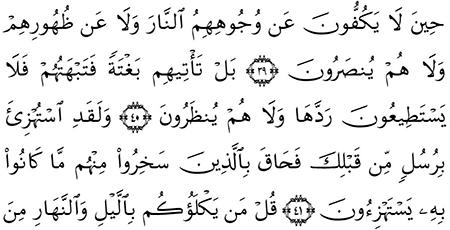 حِينَ لَا يَكُفُّونَ عَن وُجُوهِهِمُ ٱلنَّارَ وَلَا عَن ظُهُورِهِمْ
وَلَا هُمْ يُنصَرُونَ ٣٩ بَلْ تَأْتِيهِم بَغْتَةً فَتَبْهَتُهُمْ فَلَا
يَسْتَطِيعُونَ رَدَّهَا وَلَا هُمْ يُنظَرُونَ ٤٠ وَلَقَدِ ٱسْتُهْزِئَ
بِرُسُلٍ مِّن قَبْلِكَ فَحَاقَ بِٱلَّذِينَ سَخِرُوا۟ مِنْهُم مَّا كَانُوا۟
بِهِۦ يَسْتَهْزِءُونَ ٤١ قُلْ مَن يَكْلَؤُكُم بِٱلَّيْلِ وَٱلنَّهَارِ مِنَ